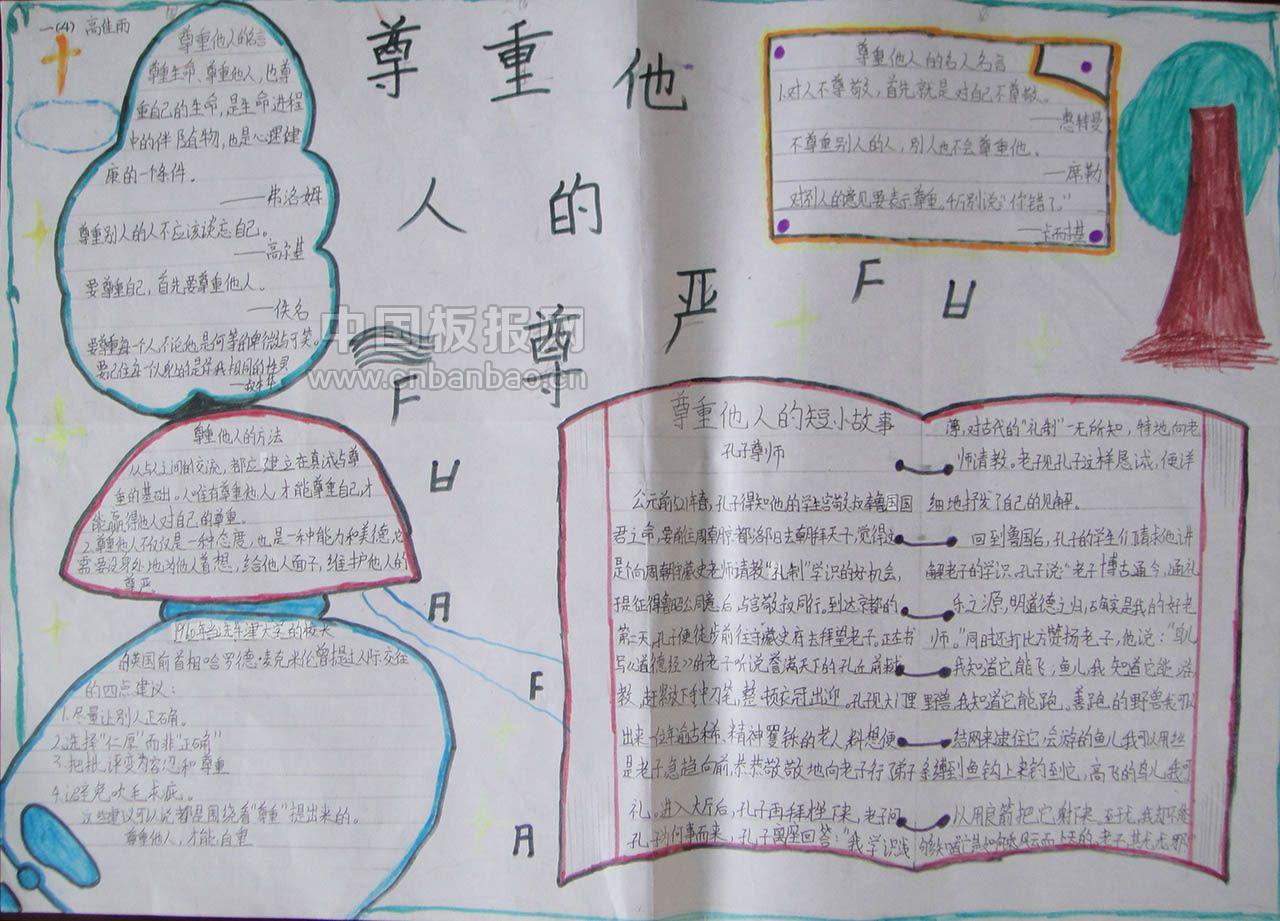 一(4) 高佳雨
尊重他
人的
尊严
尊重他人的名言
尊重生命、尊重他人,也尊
重自己的生命,是生命进程
中的伴随物,也是心理健
康的一个条件。
——弗洛姆
尊重别人的人不应该谈忘自己。
——高尔基
要尊重自己,首先要尊重他人。
——佚名
要尊重每个人,不论他是何等的卑微与可笑。
尊重他人的名人名言
1.对人不尊敬,首先就是对自己不尊敬。
——惠特曼
不尊重别人的人,别人也不会尊重他。
——席勒
对别人的意见要表示尊重。千万别说“你错了。”
——卡耐基
F
U
中国板报网
www.cnbanbao.cn
F
U
A
F
A
尊重他人的方法
人与人之间的交流,都应建立在真诚与尊
重的基础。人唯有尊重他人,才能尊重自己,才
能赢得他人对自己的尊重。
2.尊重他人不仅仅是一种态度,也是一种能力和美德,它
需要设身处地为他人着想,给他人面子,维护他人的
尊严。
的英国前首相哈罗德·麦克米伦曾提过人际交往
的四点建议:
1.尽量让别人正确。
2.选择“仁厚”而非“正确”
3.把批评变为容忍和尊重
4.避免吹毛求疵。
这些建议可以说都是围绕着“尊重”提出来的。
尊重他人,才能自重
尊重他人的短小故事
孔子尊师
公元前521年春,孔子得知他的学生宫敬叔奉鲁国国
君之命,要前往周朝京都洛阳去朝拜天子,觉得这
是个向周朝守藏史老师请教“礼制”学识的好机会,
于是征得鲁昭公同意后,与宫敬叔同行。到达京都的
第二天,孔子便徒步前往守藏史府去拜望老子。正在书
写《道德经》的老子听说誉满天下的孔丘前来求
教,赶紧放下手中刀笔,整顿衣冠出迎。孔子见大门里
出来一位年逾古稀、精神矍铄的老人,料想便
是老子,急趋向前,恭恭敬敬地向老子行了弟子
礼。进入大厅后,孔子再拜才坐下来。老子问
孔子为何事而来,孔子离座回答:“我学识浅
薄,对古代的“礼制”一无所知,特地向老
师请教。老子见孔子这样恳诚,便详
细地抒发了自己的见解。
回到鲁国后,孔子的学生们请求他讲
解老子的学识。孔子说“老子博古通今,通礼
乐之源,明道德之归,确实是我的好老
师。”同时还打比方赞扬老子,他说:“鸟儿
我知道它能飞;鱼儿,我知道它能游
野兽,我知道它能跑。善跑的野兽我可以
结网来逮住它,会游的鱼儿我可以用丝
条缚到鱼钩上来钓到它,高飞的鸟儿我可
以用良箭把它射下来。至于龙,我却不能